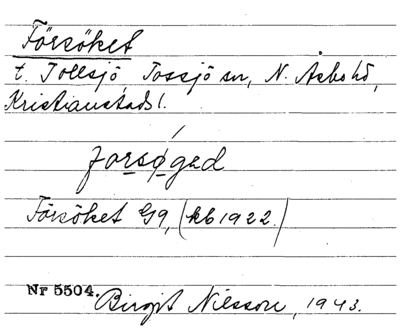 Försöket
t. Tollsjö Tossjö sn, N. Åsbo hd,
Kristianstads l.
forsøged
Försöket G9, (kb 1922.)
Nr 5504. Birgit Nilsson, 1943.